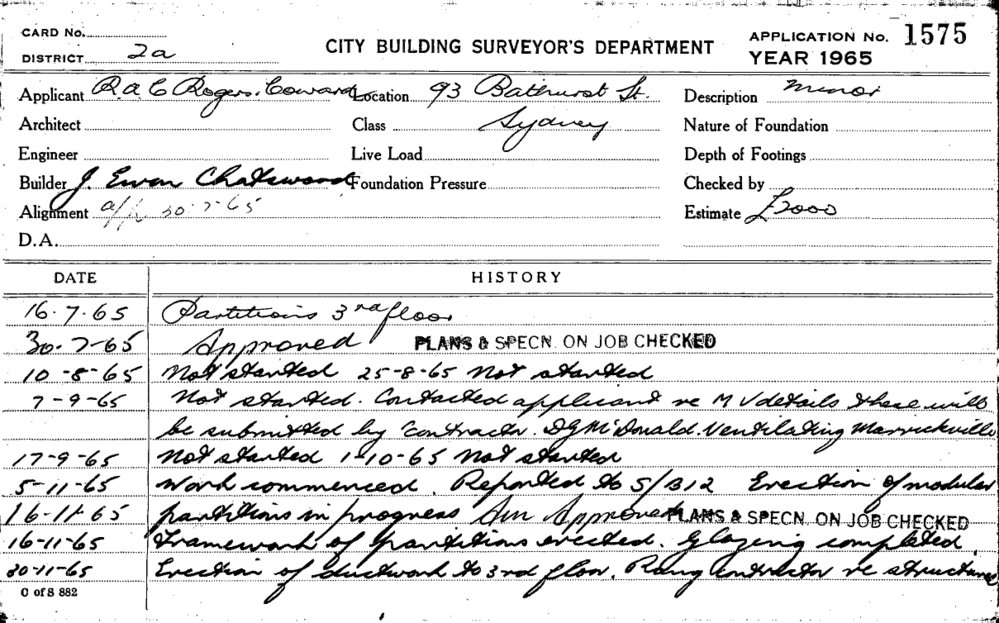 CARD No.
DISTRICT 2a
CITY BUILDING SURVEYOR'S DEPARTMENT
APPLICATION No. 1575
YEAR 1965
Applicant R.A.C Rogers. Coward Location 93 Bathurst St. Description Minor
Architect Class Sydney Nature of Foundation
Engineer Live Load Depth of Footings
Builder J. Ewan Chatswood Foundation Pressure Checked by
Alignment 30-7-65 Estimate £2000
D.A.
DATE HISTORY
16.7.65 Partitions 3rd floor
30-7-65 Approved PLANS & SPECN. ON JOB CHECKED
10-8-65 Not started 25-8-65 Not started
7-9-65 Not started. Contacted applicant re M V details these will
be submitted by contractor. D G McDonald. Ventilating Marrickville
17-9-65 Not started 1-10-65 Not started
5-11-65 Work commenced. Reported to S/B12 Erection of modular
16-11-65 partitions in progress Approved PLANS & SPECN. ON JOB CHECKED
16-11-65 Framework of partitions erected. Glazing completed.
30-11-65 Erection of ductwork to 3rd floor. Rang contractor re
C of S 882